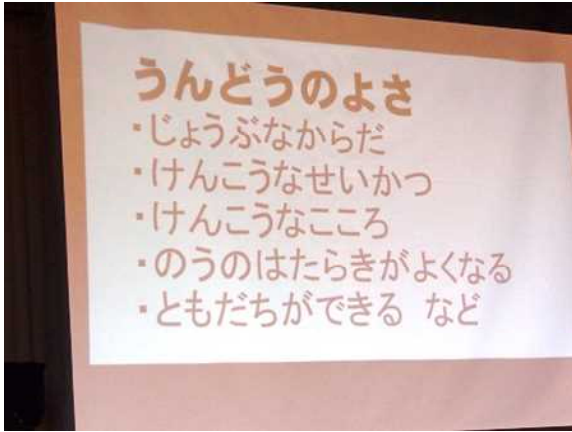 うんどうのよさ
・じょうぶなからだ
・けんこうなせいかつ
・けんこうなこころ
・のうのはたらきがよくなる
・ともだちができる など